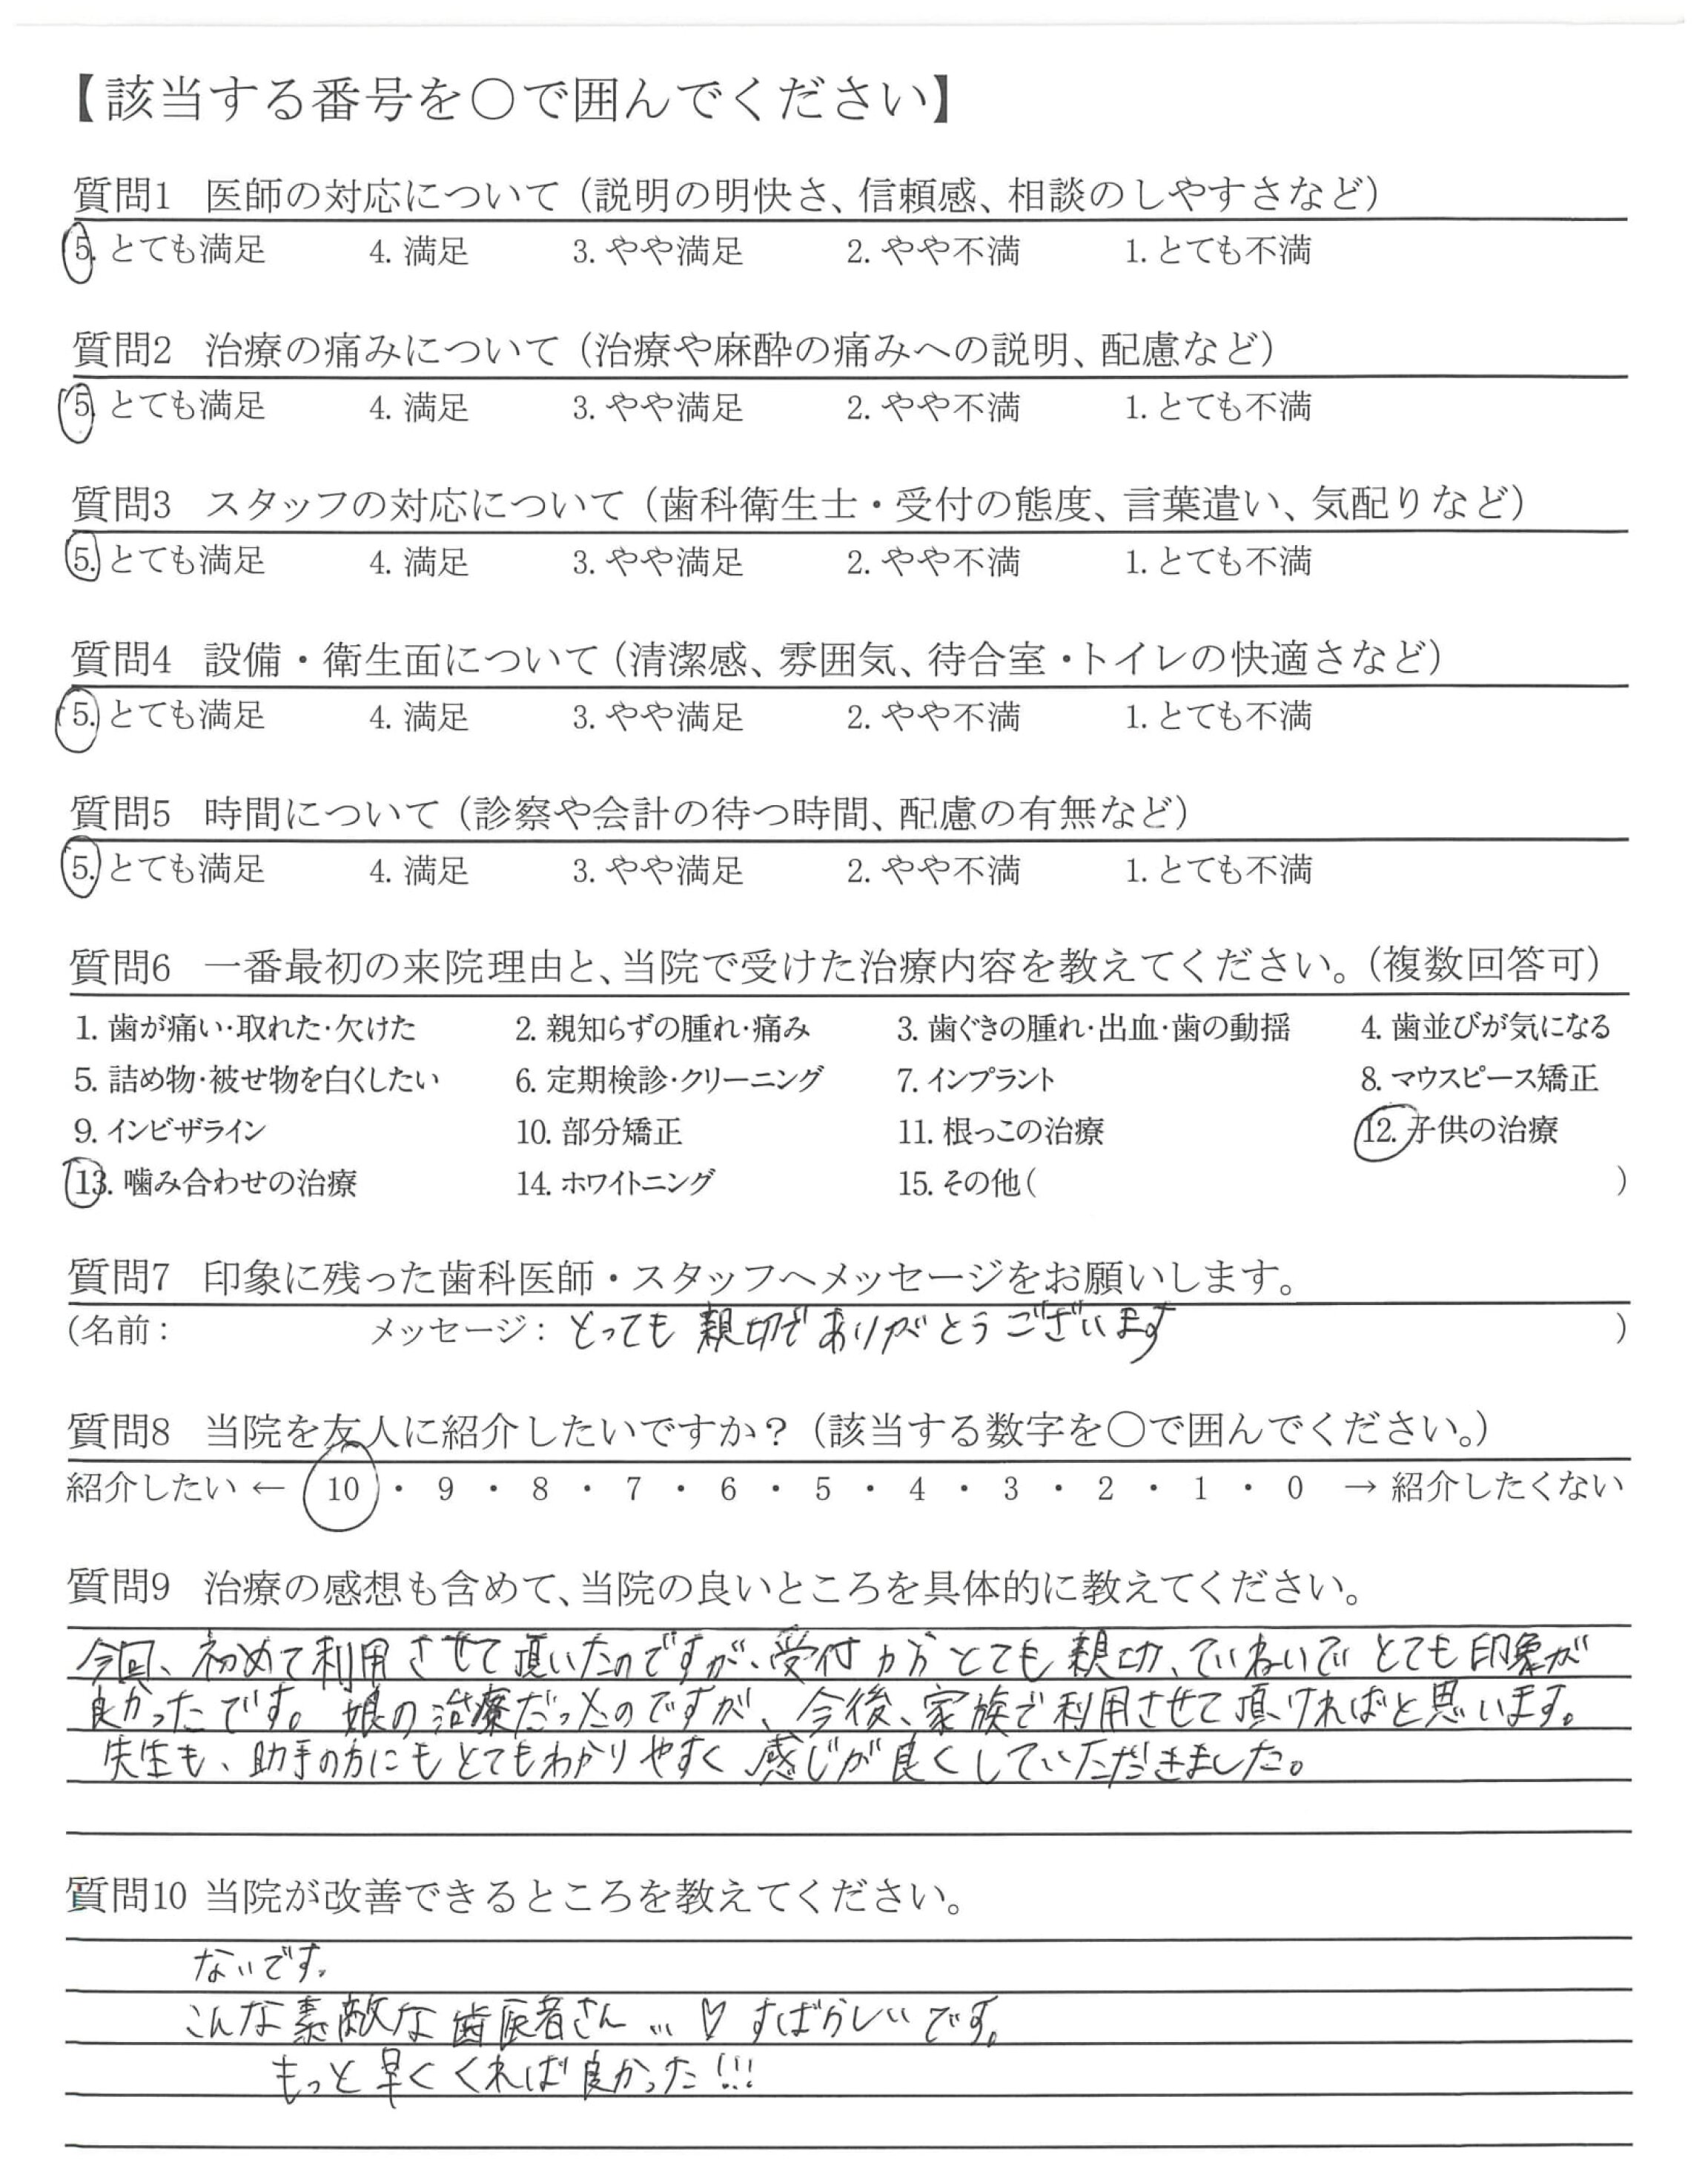 【該当する番号を〇で囲んでください】
質問1 医師の対応について（説明の明快さ、信頼感、相談のしやすさなど）
5. とても満足 4. 満足 3. やや満足 2. やや不満 1. とても不満
質問2 治療の痛みについて（治療や麻酔の痛みへの説明、配慮など）
5. とても満足 4. 満足 3. やや満足 2. やや不満 1. とても不満
質問3 スタッフの対応について（歯科衛生士・受付の態度、言葉遣い、気配りなど）
5. とても満足 4. 満足 3. やや満足 2. やや不満 1. とても不満
質問4 設備・衛生面について（清潔感、雰囲気、待合室・トイレの快適さなど）
5. とても満足 4. 満足 3. やや満足 2. やや不満 1. とても不満
質問5 時間について（診察や会計の待つ時間、配慮の有無など）
5. とても満足 4. 満足 3. やや満足 2. やや不満 1. とても不満
質問6 一番最初の来院理由と、当院で受けた治療内容を教えてください。（複数回答可）
1. 歯が痛い・取れた・欠けた 2. 親知らずの腫れ・痛み 3. 歯ぐきの腫れ・出血・歯の動揺 4. 歯並びが気になる
5. 詰め物・被せ物を白くしたい 6. 定期検診・クリーニング 7. インプラント 8. マウスピース矯正
9. インビザライン 10. 部分矯正 11. 根っこの治療 12. 子供の治療
13. 噛み合わせの治療 14. ホワイトニング 15. その他（ ）
質問7 印象に残った歯科医師・スタッフへメッセージをお願いします。
（名前： メッセージ：とっても親切でありがとうございます ）
質問8 当院を友人に紹介したいですか？（該当する数字を〇で囲んでください。）
紹介したい ← 10 ・ 9 ・ 8 ・ 7 ・ 6 ・ 5 ・ 4 ・ 3 ・ 2 ・ 1 ・ 0 → 紹介したくない
質問9 治療の感想も含めて、当院の良いところを具体的に教えてください。
今回、初めて利用させて頂いたのですが、受付の方とても親切、ていねいでとても印象が
良かったです。娘の治療だったのですが、今後、家族で利用させて頂ければと思います。
先生も、助手の方にもとてもわかりやすく感じが良くしていただきました。
質問10 当院が改善できるところを教えてください。
ないです。
こんな素敵な歯医者さん…♡すばらしいです。
もっと早くくれば良かった!!!